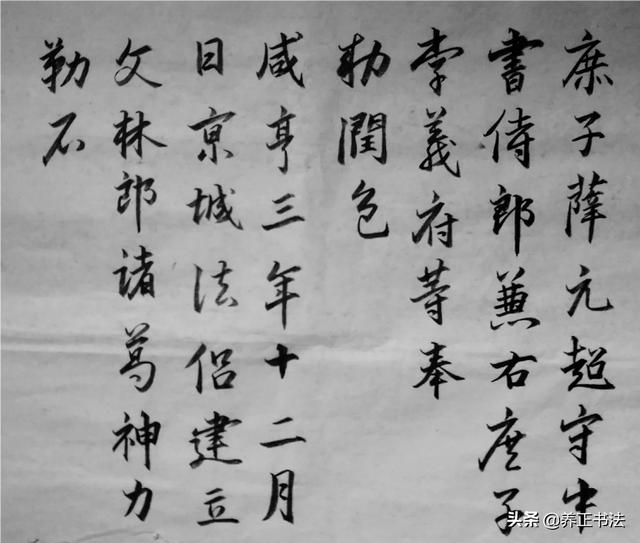 庶子薛元超守中
書侍郎兼右庶子
李義府等奉
勅潤色
咸亨三年十二月
日京城法侶建立
文林郎諸葛神力
勒石
头条 @养正书法